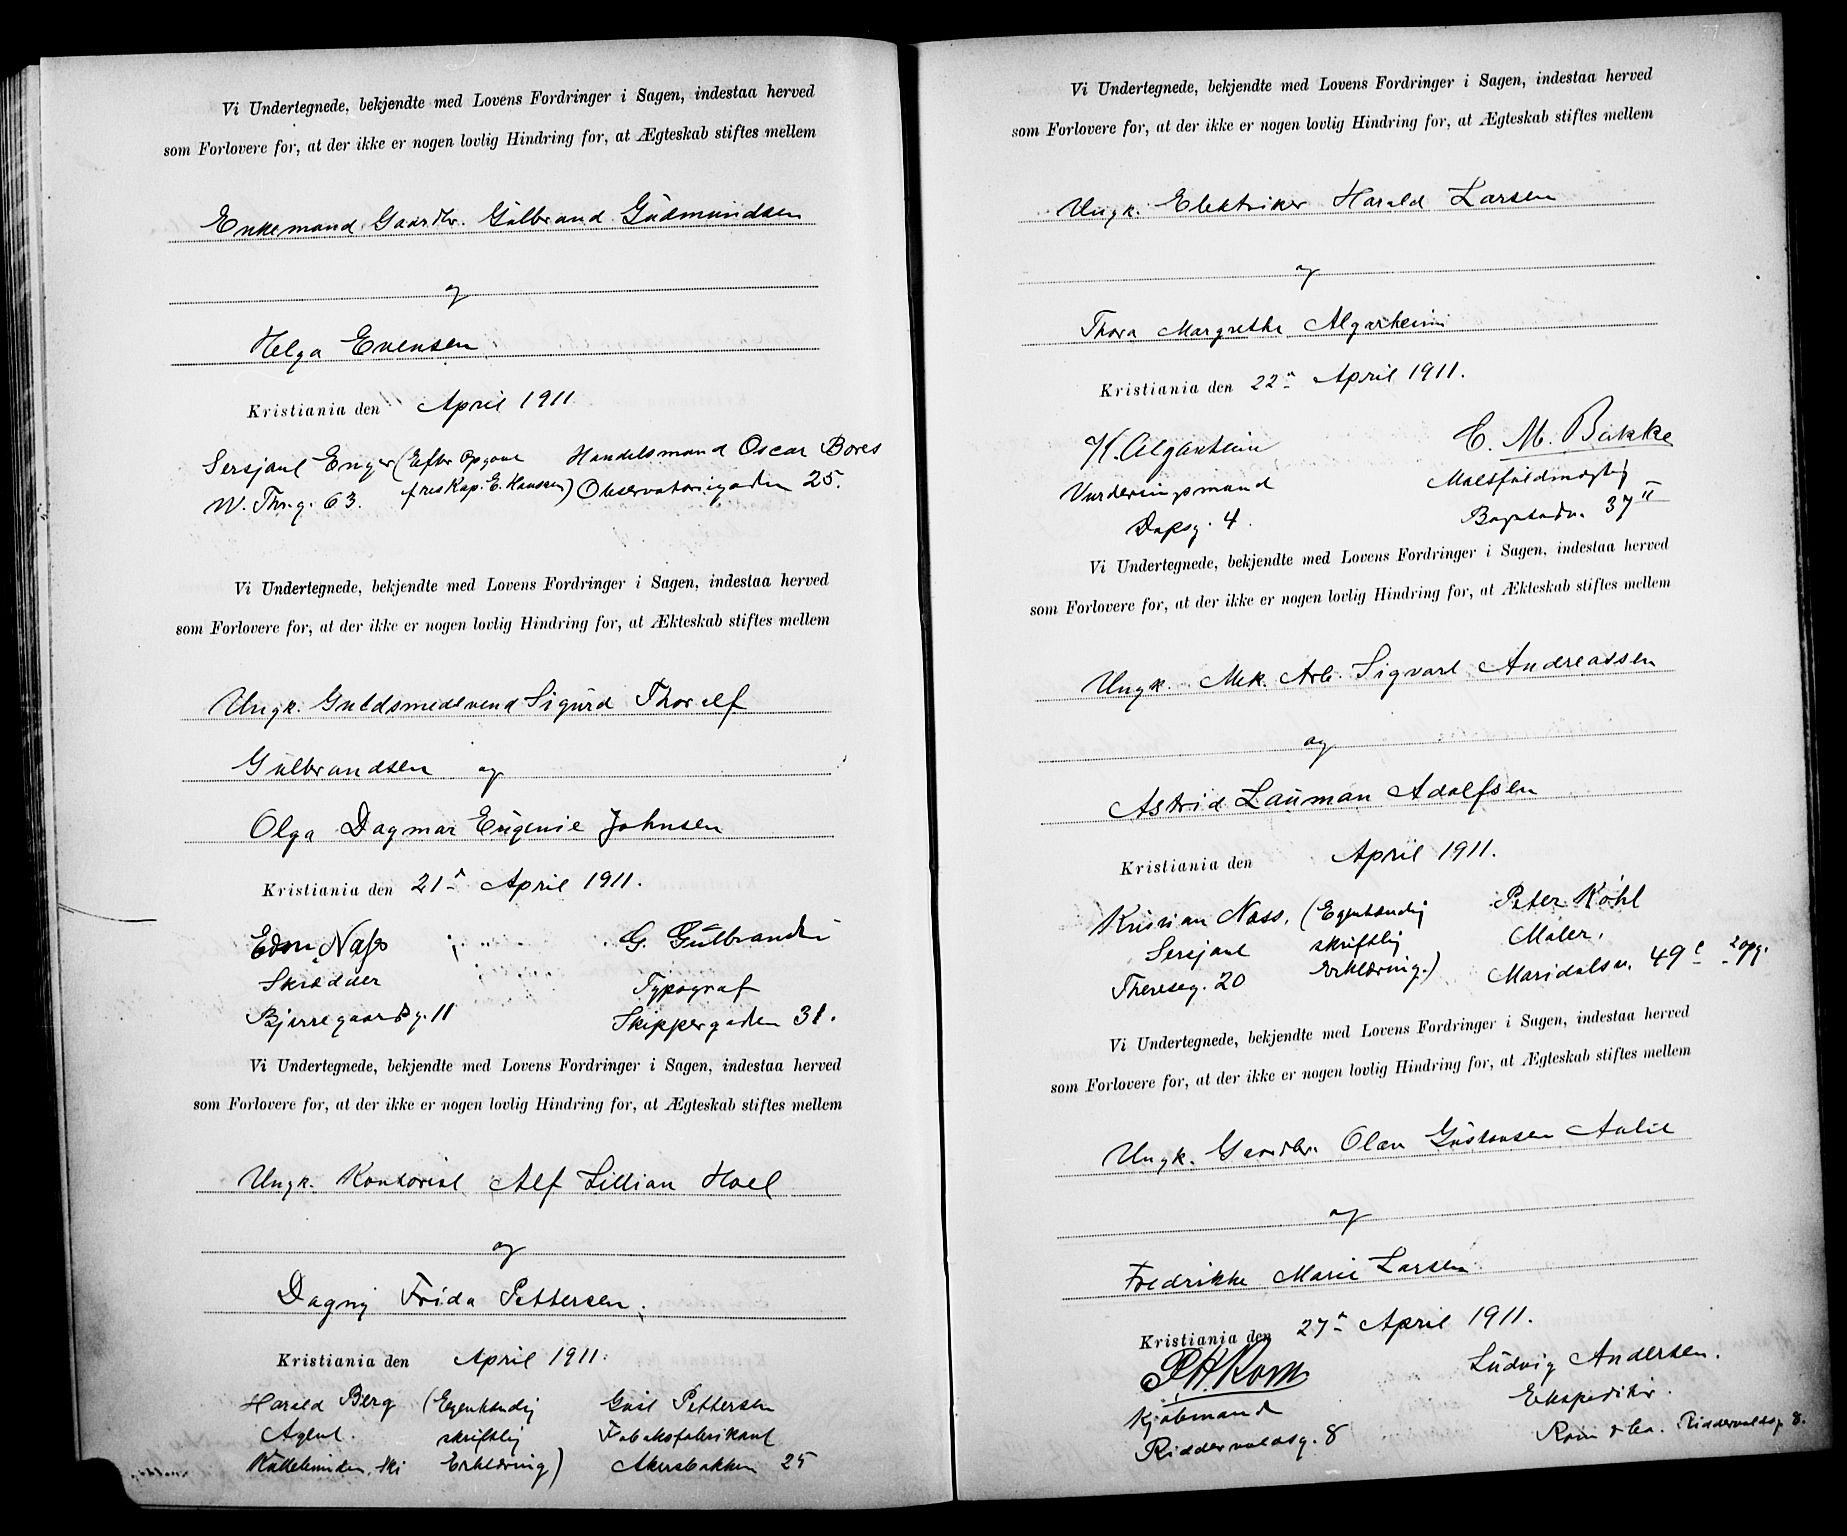 Vi Undertegnede, bekjendte med Lovens Fordringer i Sagen, indestaa herved
som Forlovere for, at der ikke er nogen lovlig Hindring for, at Ægteskab stiftes mellem
Enkemand Gaardbr. Gulbrand Gudmundsen
og
Helga Evensen
Kristiania den April 1911
Sersjant Enger (Efter Opgave Handelsmand Oscar Bores
W. Thr.g. 63. fres Kap. E. Hansen) Observatoriegaden 25.
Vi Undertegnede, bekjendte med Lovens Fordringer i Sagen, indestaa herved
som Forlovere for, at der ikke er nogen lovlig Hindring for, at Ækteskab stiftes mellem
Ungk. Guldsmedsvend Sigurd Thoralf
Gulbrandsen og
Olga Dagmar Eugenie Johnsen
Kristiania den 21 April 1911.
Edv. Næss G. Gulbrandsen
Skrædder Typograf
Bjerregaardsg. 11 Skippergaden 31.
Vi Undertegnede, bekjendte med Lovens Fordringer i Sagen, indestaa herved
som Forlovere for, at der ikke er nogen lovlig Hindring for, at Ægteskab stiftes mellem
Ungk. Kontorist Alf Lillian Hoel
og
Dagny Frida Pettersen.
Kristiania den April 1911.
Harald Berg (Egenhændig Gust Pettersen
Agent. skriftlig Tobaksfabrikant
Ski Erklæring) Akersbakken 25
Vi Undertegnede, bekjendte med Lovens Fordringer i Sagen, indestaa herved
som Forlovere for, at der ikke er nogen lovlig Hindring for, at Ægteskab stiftes mellem
Ungk. Elektriker Harald Larsen
og
Thora Margrethe Algarheim
Kristiania den 22 April 1911.
H. Algarheim C. M. Bakke
Vurderingsmand Maltfuldmægtig
Dopsg. 4. Bogstadv. 37 II
Vi Undertegnede, bekjendte med Lovens Fordringer i Sagen, indestaa herved
som Forlovere for, at der ikke er nogen lovlig Hindring for, at Ækteskab stiftes mellem
Ungk. Mek. Arb. Sigvart Andreassen
og
Astrid Lauman Adolfsen
Kristiania den April 1911.
Kristian Næss. (Egenhændig Peter Kohl
Sersjant skriftlig Maler.
Thereseg. 20 Erklæring.) Maridalsv. 49 c 2 opg.
Vi Undertegnede, bekjendte med Lovens Fordringer i Sagen, indestaa herved
som Forlovere for, at der ikke er nogen lovlig Hindring for, at Ægteskab stiftes mellem
Ungk. Gaardbr. Olav Gustavsen Aulie
og
Fredrikke Marie Larsen
Kristiania den 27 April 1911.
P. H. Rom Ludvig Andersen.
Kjøbmand Ekspeditør.
Riddervoldsg. 8 Rom & Co. Riddervoldsg 8.